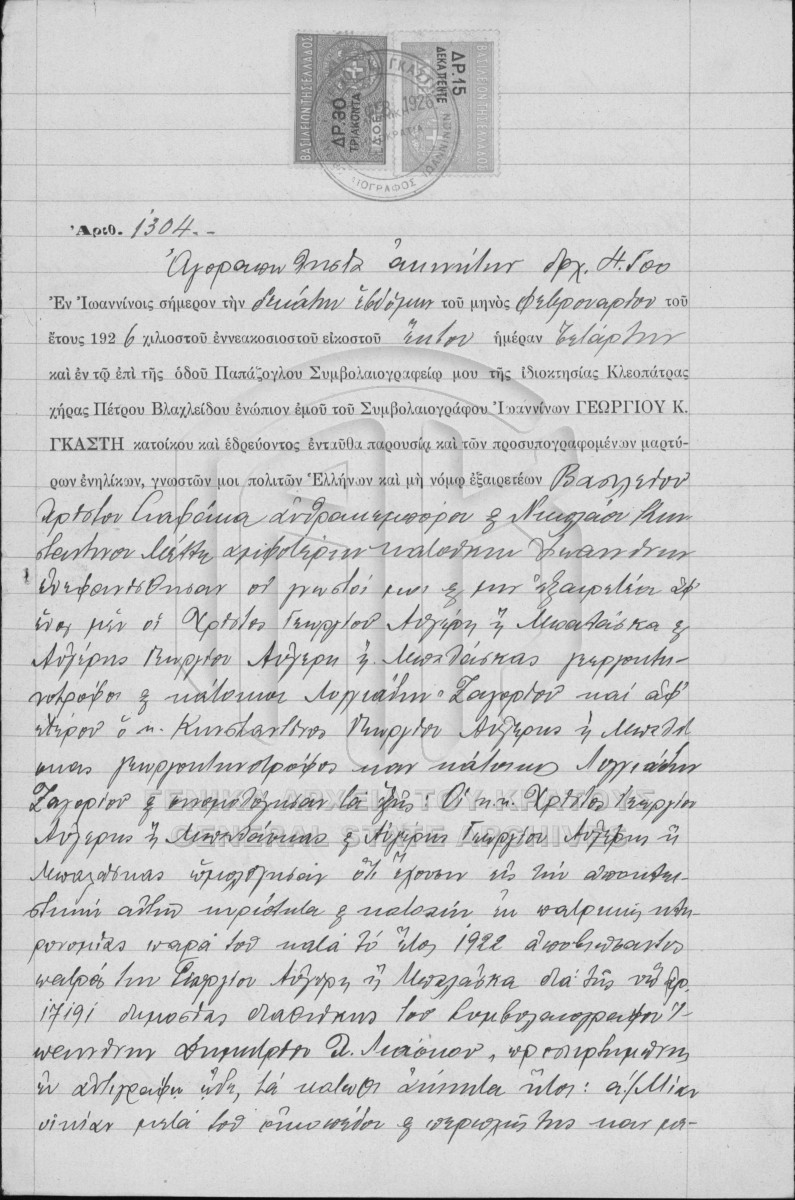 ΒΑΣΙΛΕΙΟΝ ΤΗΣ ΕΛΛΑΔΟΣ
ΔΡ. 30
ΤΡΙΑΚΟΝΤΑ
ΔΡ. 15
ΔΕΚΑΠΕΝΤΕ
ΒΑΣΙΛΕΙΟΝ ΤΗΣ ΕΛΛΑΔΟΣ
Ἀριθ. 1304.-
ἀκινήτων δρχ.
Ἐν Ἰωαννίνοις σήμερον τὴν δεκάτην ἑβδόμην τοῦ μηνὸς Φεβρουαρίου τοῦ
ἔτους 1926 χιλιοστοῦ ἐννεακοσιοστοῦ εἰκοστοῦ ἕκτου ἡμέραν Τετάρτην
καὶ ἐν τῷ ἐπὶ τῆς ὁδοῦ Παπάζογλου Συμβολαιογραφείῳ μου τῆς ἰδιοκτησίας Κλεοπάτρας
χήρας Πέτρου Βλαχλείδου ἐνώπιον ἐμοῦ τοῦ Συμβολαιογράφου Ἰωαννίνων ΓΕΩΡΓΙΟΥ Κ.
ΓΚΑΣΤΗ κατοίκου καὶ ἑδρεύοντος ἐνταῦθα παρουσίᾳ καὶ τῶν προσυπογραφομένων μαρτύ-
ρων ἐνηλίκων, γνωστῶν μοι πολιτῶν Ἑλλήνων καὶ μὴ νόμῳ ἐξαιρετέων Βασιλείου
Χρήστου ἀνθρακεμπόρου & Νικολάου Κων
σταντίνου ἀμφοτέρων κατοίκων Ἰωαννίνων
ἐνεφανίσθησαν οἱ γνωστοί μοι & μὴ ἐξαιρετέοι ἀφ'
ἑνὸς μὲν οἱ Χρῆστος Γεωργίου Αὐγέρη ἢ Μπαλάσκα &
Αὐγέρης Γεωργίου Αὐγέρη ἢ Μπαλάσκας γεωργοκτη-
νοτρόφοι & κάτοικοι Λιγγιάδων Ζαγορίου καὶ ἀφ'
ἑτέρου ὁ κ. Κωνσταντῖνος Γεωργίου Αὐγέρης ἢ Μπαλά
σκας γεωργοκτηνοτρόφος καὶ κάτοικος Λιγγιάδων
Ζαγορίου & ὡμολόγησαν τὰ ἑξῆς: Οἱ κ.κ. Χρῆστος Γεωργίου
Αὐγέρης ἢ Μπαλάσκας & Αὐγέρης Γεωργίου Αὐγέρης ἢ
Μπαλάσκας ὡμολόγησαν ὅτι ἔχουσιν εἰς τὴν ἀποκλει-
στικὴν αὐτῶν κυριότητα & κατοχὴν ἐκ πατρικῆς κλη-
ρονομίας παρὰ τοῦ κατὰ τὸ ἔτος 1922 ἀποβιώσαντος
πατρός των Γεωργίου Αὐγέρη ἢ Μπαλάσκα διὰ τῆς ὑπ' ἀρ.
17191 δημοσίας διαθήκης τοῦ Συμβολαιογράφου Ἰ-
ωαννίνων Δημητρίου
ἐν ἀντιγράφῳ ὧδε, τὰ κάτωθι ἀκίνητα ἤτοι: α) Μίαν
οἰκίαν μετὰ τοῦ οἰκοπέδου & περιοχῆς της καὶ με-
ΓΕΝΙΚΑ ΑΡΧΕΙΑ ΤΟΥ ΚΡΑΤΟΥΣ
GENERAL STATE ARCHIVES